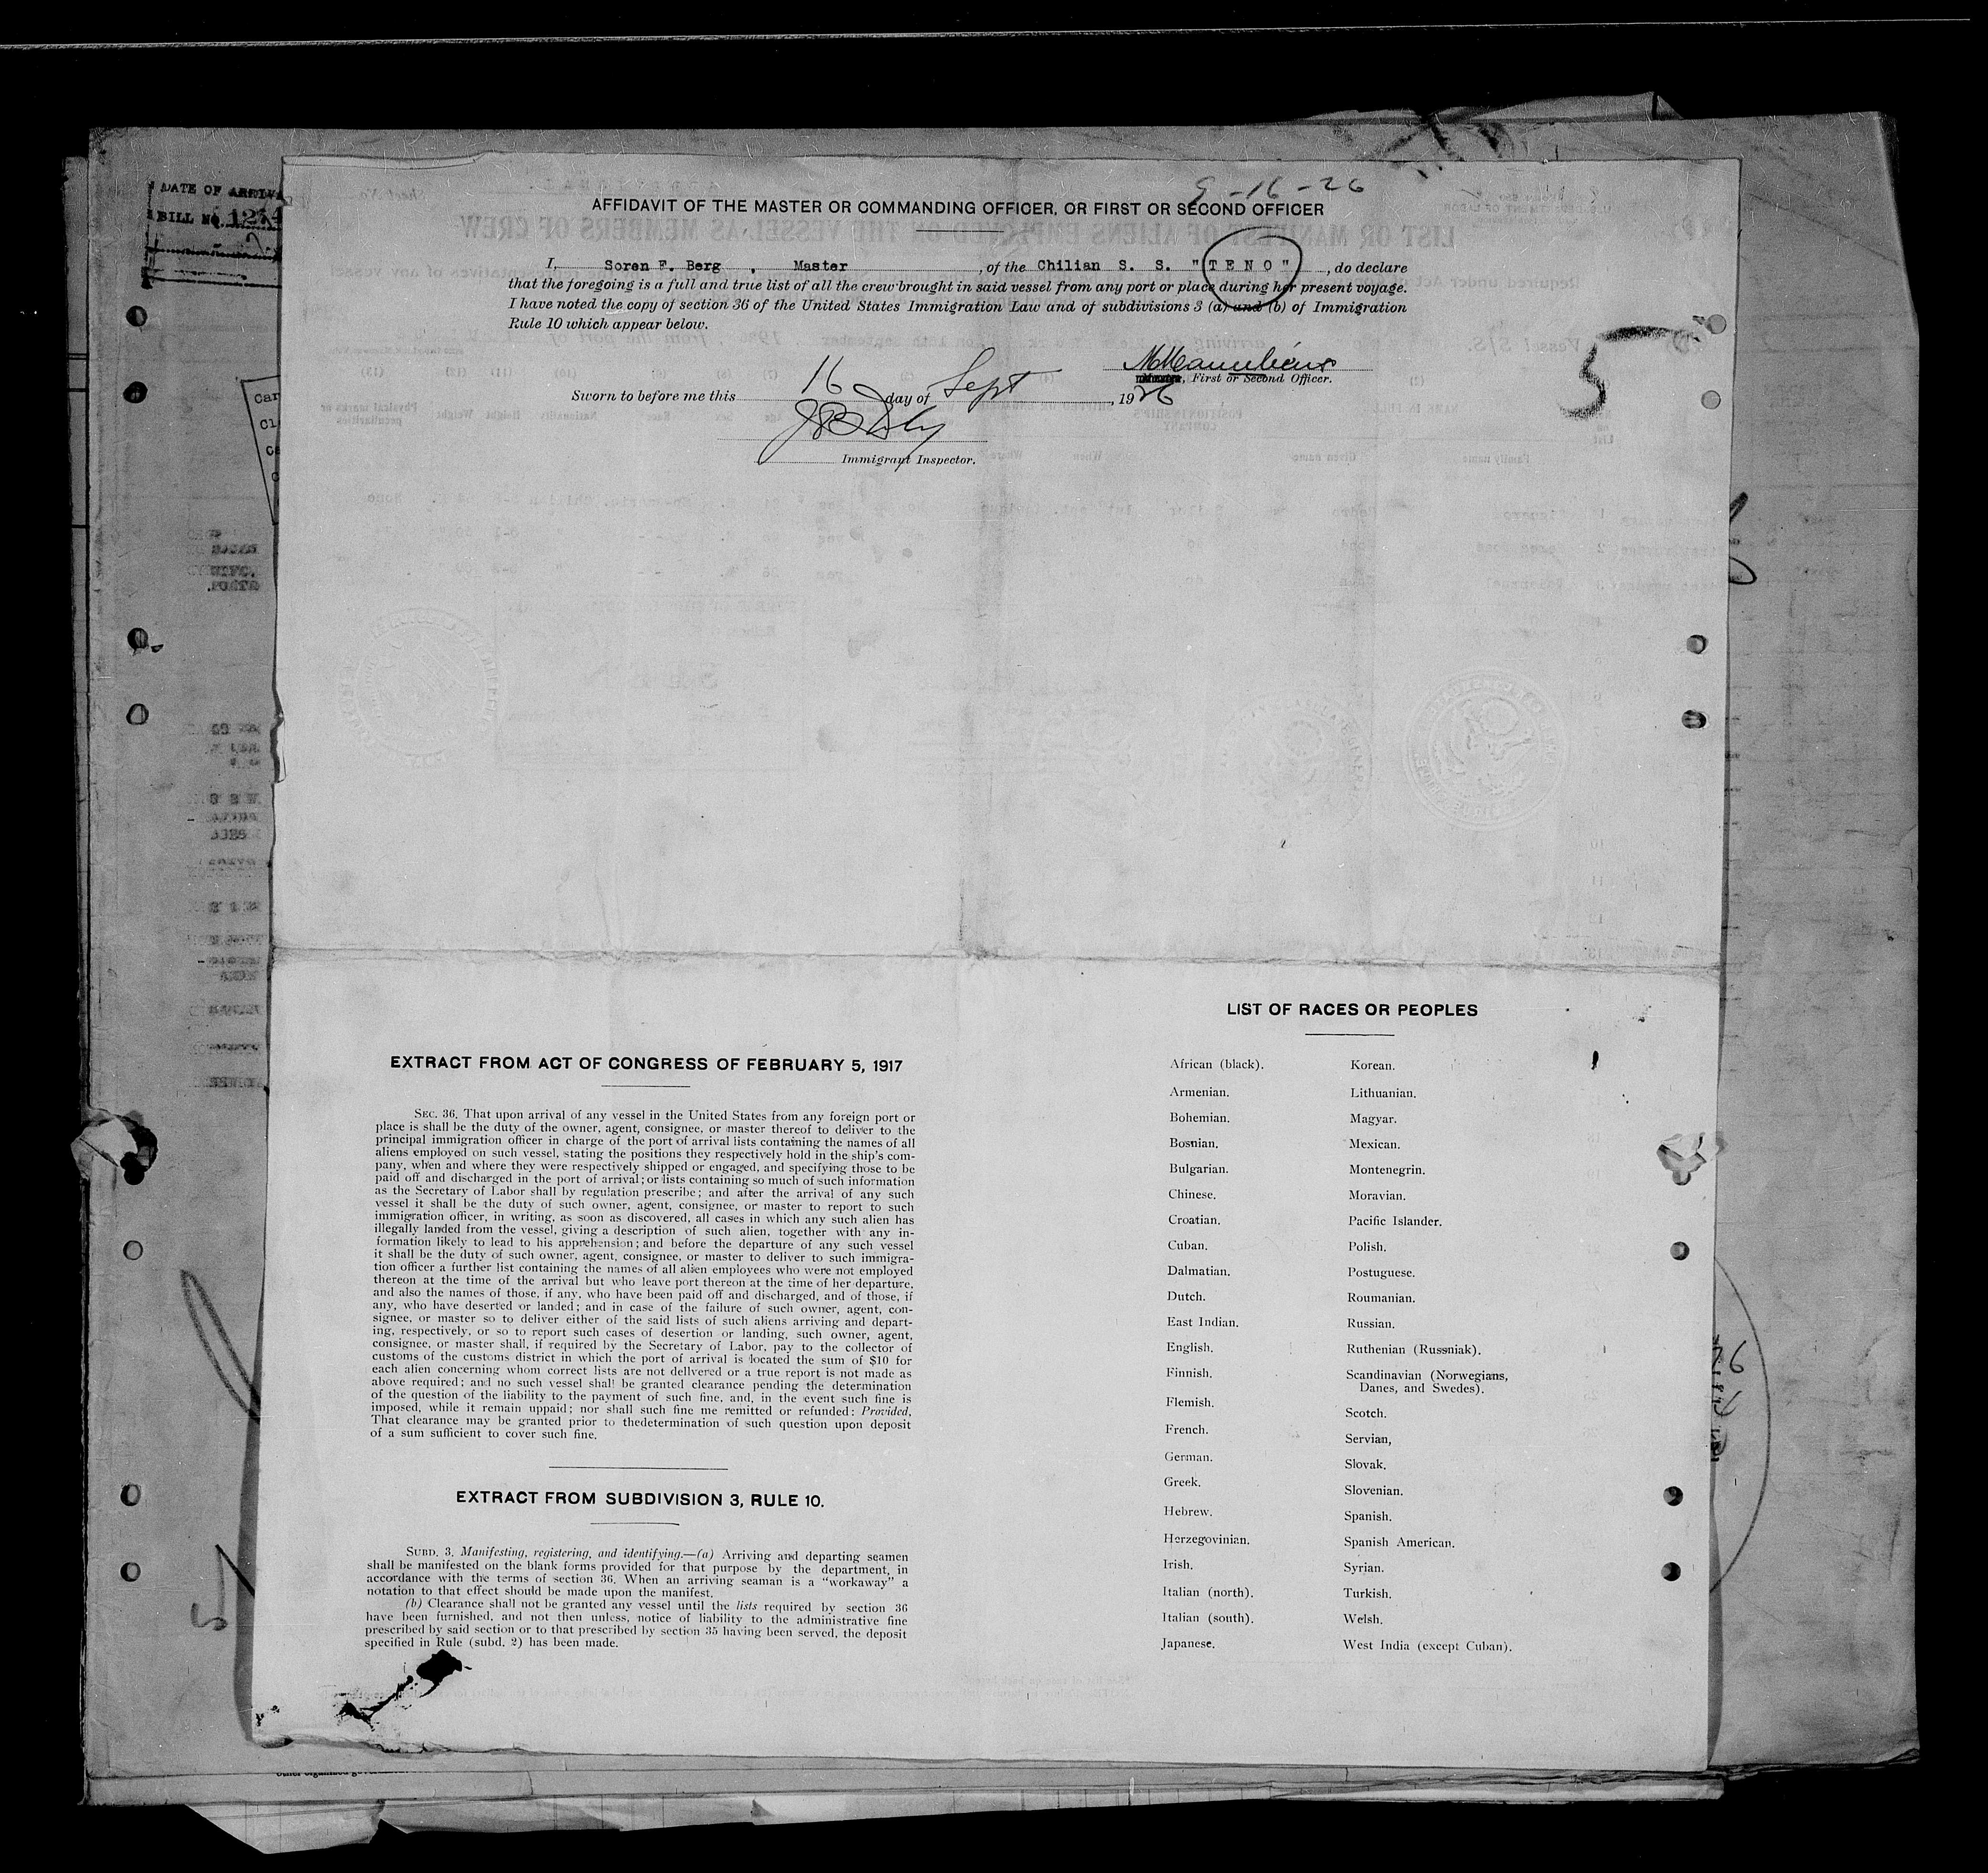 DATE OF ARRIV
BILL No. 1274
9-16-26
AFFIDAVIT OF THE MASTER OR COMMANDING OFFICER, OR FIRST OR SECOND OFFICER
I, Soren F. Berg , Master , of the Chilian S. S. "TENO" , do declare
that the foregoing is a full and true list of all the crew brought in said vessel from any port or place during her present voyage.
I have noted the copy of section 36 of the United States Immigration Law and of subdivisions 3 (a) and (b) of Immigration
Rule 10 which appear below.
5
Master, First or Second Officer.
Sworn to before me this 16 day of Sept , 1926
Immigrant Inspector.
EXTRACT FROM ACT OF CONGRESS OF FEBRUARY 5, 1917
SEC. 36. That upon arrival of any vessel in the United States from any foreign port or
place is shall be the duty of the owner, agent, consignee, or master thereof to deliver to the
principal immigration officer in charge of the port of arrival lists containing the names of all
aliens employed on such vessel, stating the positions they respectively hold in the ship's com-
pany, when and where they were respectively shipped or engaged, and specifying those to be
paid off and discharged in the port of arrival; or lists containing so much of such information
as the Secretary of Labor shall by regulation prescribe; and after the arrival of any such
vessel it shall be the duty of such owner, agent, consignee, or master to report to such
immigration officer, in writing, as soon as discovered, all cases in which any such alien has
illegally landed from the vessel, giving a description of such alien, together with any in-
formation likely to lead to his apprehension; and before the departure of any such vessel
it shall be the duty of such owner, agent, consignee, or master to deliver to such immigra-
tion officer a further list containing the names of all alien employees who were not employed
thereon at the time of the arrival but who leave port thereon at the time of her departure,
and also the names of those, if any, who have been paid off and discharged, and of those, if
any, who have deserted or landed; and in case of the failure of such owner, agent, con-
signee, or master so to deliver either of the said lists of such aliens arriving and depart-
ing, respectively, or so to report such cases of desertion or landing, such owner, agent,
consignee, or master shall, if required by the Secretary of Labor, pay to the collector of
customs of the customs district in which the port of arrival is located the sum of $10 for
each alien concerning whom correct lists are not delivered or a true report is not made as
above required; and no such vessel shall be granted clearance pending the determination
of the question of the liability to the payment of such fine, and, in the event such fine is
imposed, while it remain uppaid; nor shall such fine me remitted or refunded: Provided,
That clearance may be granted prior to thedetermination of such question upon deposit
of a sum sufficient to cover such fine.
EXTRACT FROM SUBDIVISION 3, RULE 10.
SUBD. 3. Manifesting, registering, and identifying.—(a) Arriving and departing seamen
shall be manifested on the blank forms provided for that purpose by the department, in
accordance with the terms of section 36. When an arriving seaman is a "workaway" a
notation to that effect should be made upon the manifest.
(b) Clearance shall not be granted any vessel until the lists required by section 36
have been furnished, and not then unless, notice of liability to the administrative fine
prescribed by said section or to that prescribed by section 35 having been served, the deposit
specified in Rule (subd. 2) has been made.
LIST OF RACES OR PEOPLES
African (black).
Armenian.
Bohemian.
Bosnian.
Bulgarian.
Chinese.
Croatian.
Cuban.
Dalmatian.
Dutch.
East Indian.
English.
Finnish.
Flemish.
French.
German.
Greek.
Hebrew.
Herzegovinian.
Irish.
Italian (north).
Italian (south).
Japanese.
Korean.
Lithuanian.
Magyar.
Mexican.
Montenegrin.
Moravian.
Pacific Islander.
Polish.
Postuguese.
Roumanian.
Russian.
Ruthenian (Russniak).
Scandinavian (Norwegians,
Danes, and Swedes).
Scotch.
Servian,
Slovak.
Slovenian.
Spanish.
Spanish American.
Syrian.
Turkish.
Welsh.
West India (except Cuban).